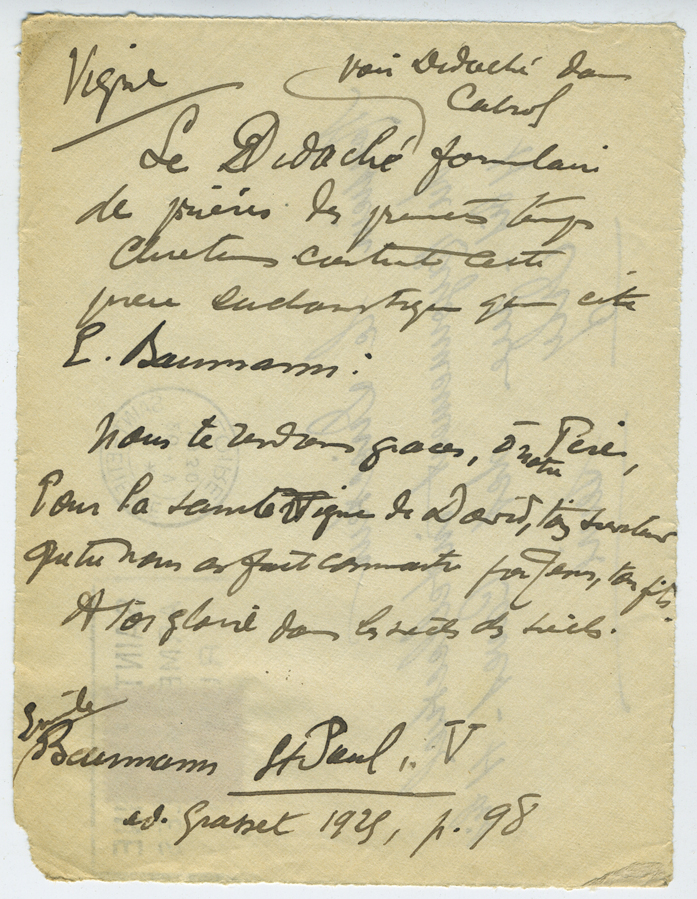 Vigne
voir Didaché dans
Cabrol
Le Didaché formulaire
de prières des premiers temps
Chrétiens contient cette
prière eucharistique que cite
E. Baumann :
Nous te rendons graces, ô notre Père,
Pour la sainte Vigne de David, ton serviteur
Que tu nous as fait connaitre par Jésus, ton fils.
A toi gloire dans les siècles des siècles.
Emile
Baumann St Paul, V
ed. Grasset 1925, p. 98